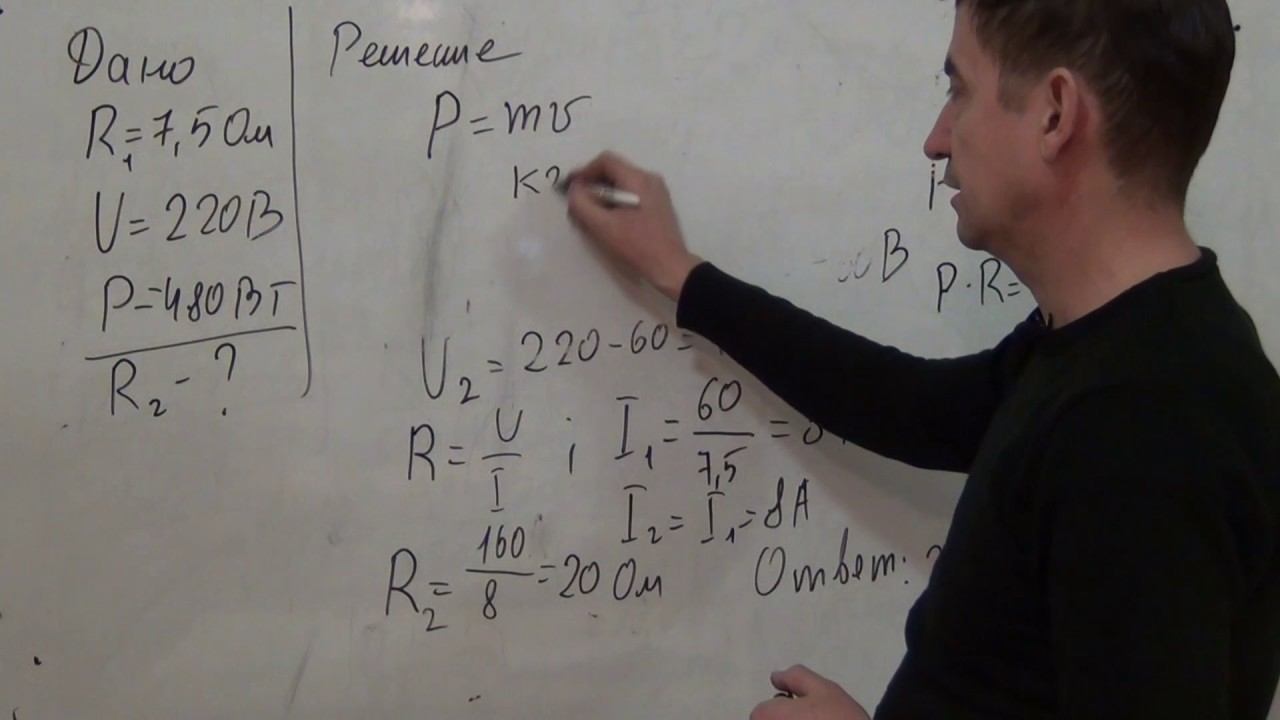 Дано
R₁=7,5 Ом
U=220В
P=480Вт
R₂-?
Решение
P=mv
кг
В
P·R=
U₂=220-60=
R=U/I ; I₁=60/7,5=
I₂=I₁=8А
R₂=160/8=20 Ом
Ответ: